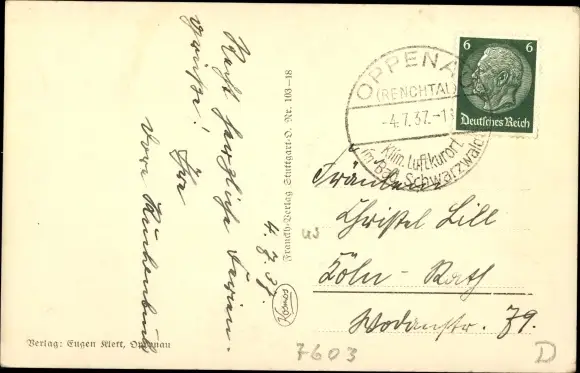 Recht herzliche Ferien-
grüße!
Ihre
Dora Kuckenbuch
4.7.37.
Verlag: Eugen Klett, Oppenau
Franckh-Verlag Stuttgart-O. Nr. 103-18
Kosmos
OPPENAU
(RENCHTAL)
-4.7.37.-1
Klim. Luftkurort
im Bad. Schwarzwald
6 6
Deutsches Reich
Fräulein
Christel Lill
Köln - Rath
Wodanstr. 79.
7603
D